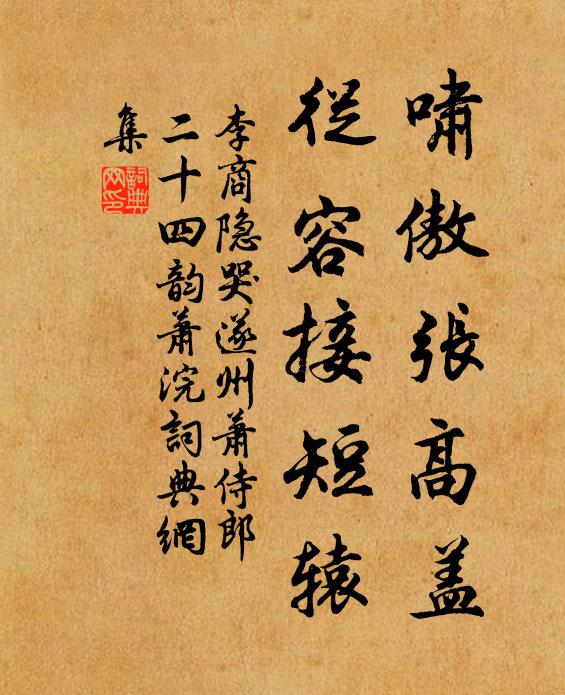 嘯傲張高盖
從容接短辕
李商隐哭遂州萧侍郎
二十四韵萧浣詞典網
集
詞典網印